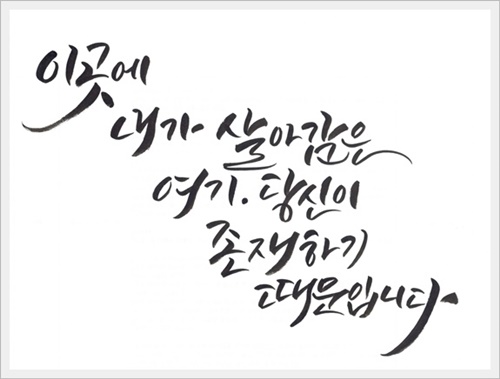 이곳에
내가 살아감은
여기. 당신이
존재하기
때문입니다.